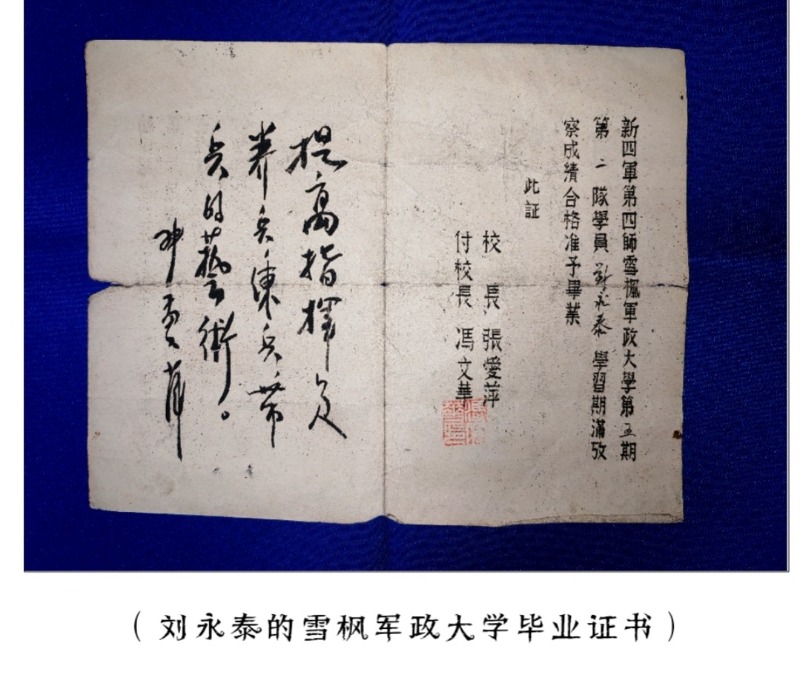 新四軍第四師雪楓軍政大學第五期
第二隊學員劉永泰學習期滿攷
察成績合格准予畢業
此証
校長張愛萍
付校長馮文華
提高指揮及
养兵練兵帶
兵的藝術。
（刘永泰的雪枫军政大学毕业证书）